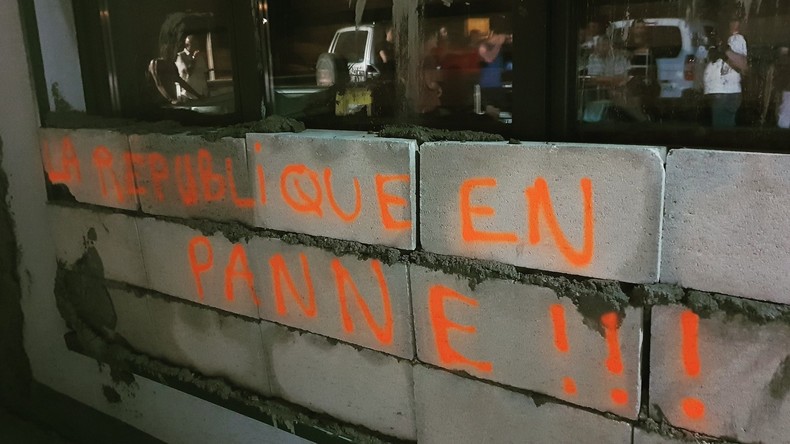 LA RÉPUBLiQUE EN
PANNE !!!